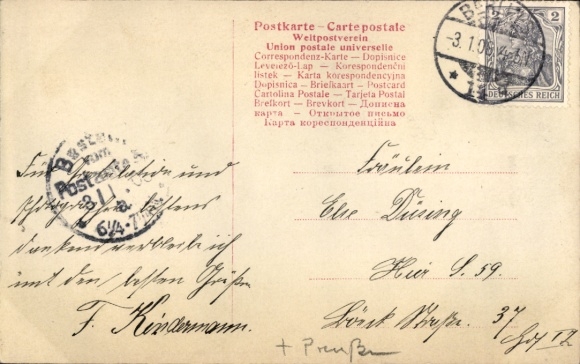 Postkarte – Carte postale
Weltpostverein
Union postale universelle
Correspondenz-Karte – Dopisnice
Levelező-Lap – Korespondenční
listek – Karta korespondencyjna
Dopisnica – Briefkaart – Postcard
Cartolina Postale – Tarjeta Postal
Brefkort – Brevkort – Дописна
карта – Открытое письмо
Карта кореспонденційна
BERLIN
3.1.06
2
DEUTSCHES REICH
Bestellt
vom
Postamte
3/1
6¼-7½
Für Gratulation und
Photographie bestens
dankend verbleibe ich
mit den besten Grüßen
F. Kindermann.
Fräulein
Else Düsing
Hier S. 59
Böeck Straße. 37
Hof IV
+ Preußen